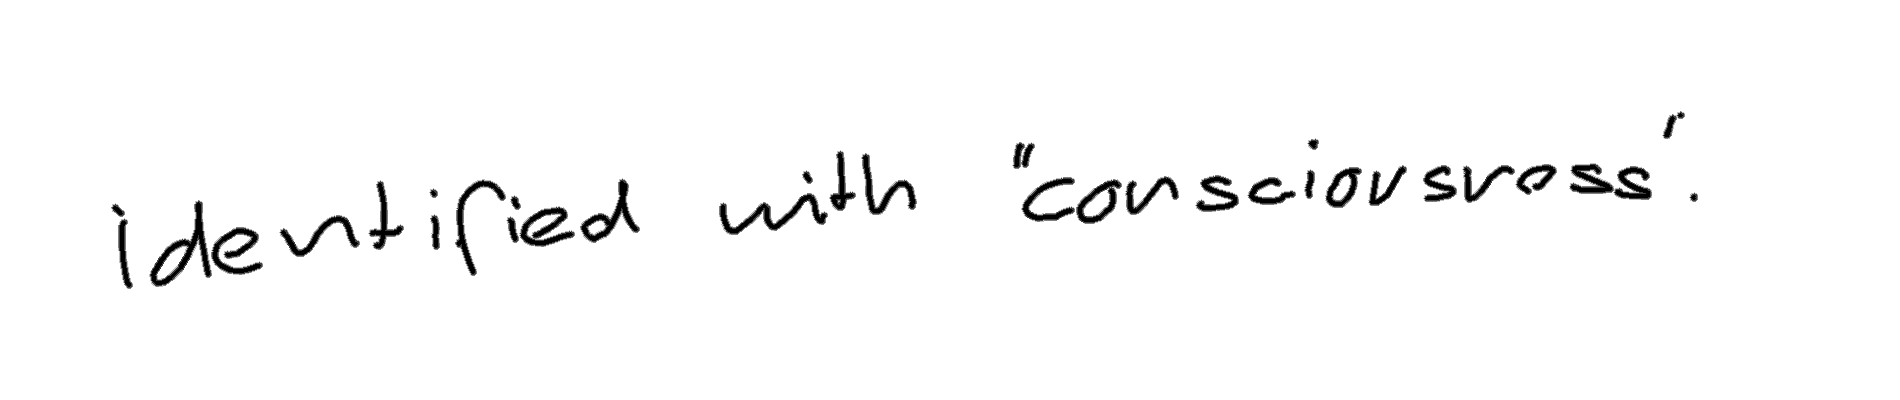 identified with "consciousness".